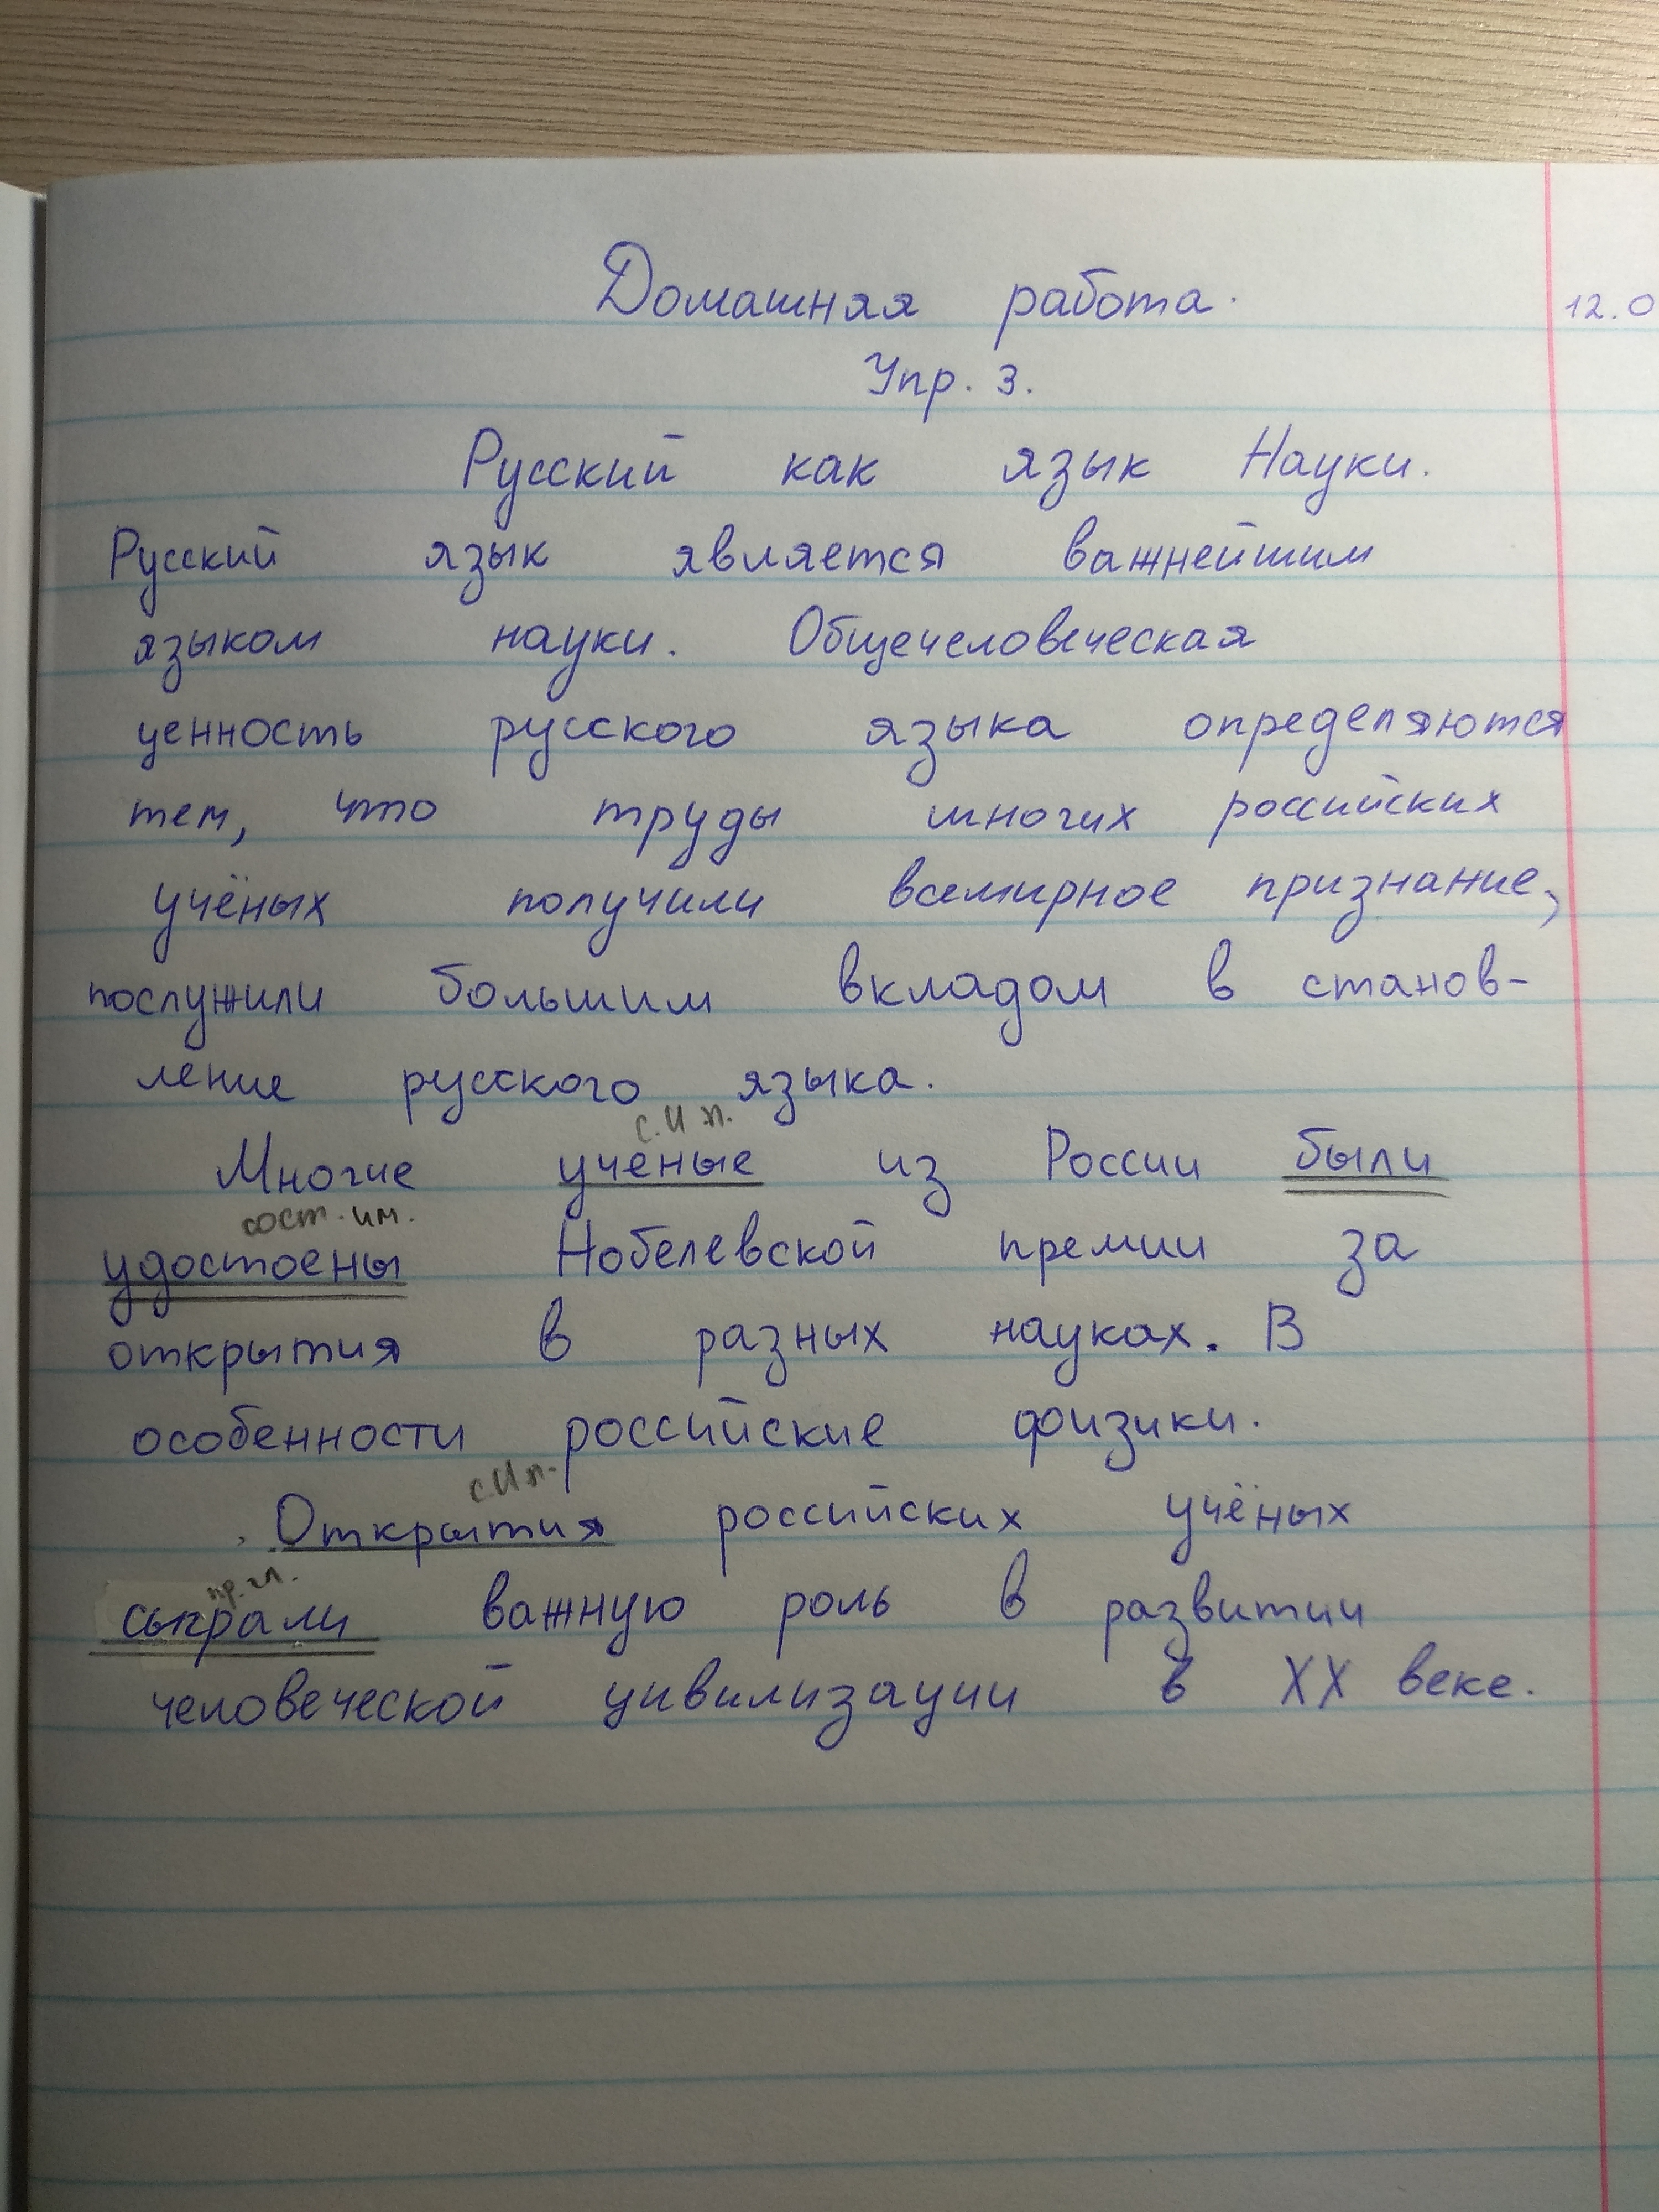 Домашняя работа.
12.0
Упр. 3.
Русский как язык Науки.
Русский язык является важнейшим
языком науки. Общечеловеческая
ценность русского языка определяются
тем, что труды многих российских
учёных получили всемирное признание,
послужили большим вкладом в станов-
ление русского языка.
с. и п.
Многие ученые из России были
сост. им.
удостоены Нобелевской премии за
открытия в разных науках. В
особенности российские физики.
с. и п.
Открытия российских учёных
пр. гл.
сыграли важную роль в развитии
человеческой цивилизации в XX веке.